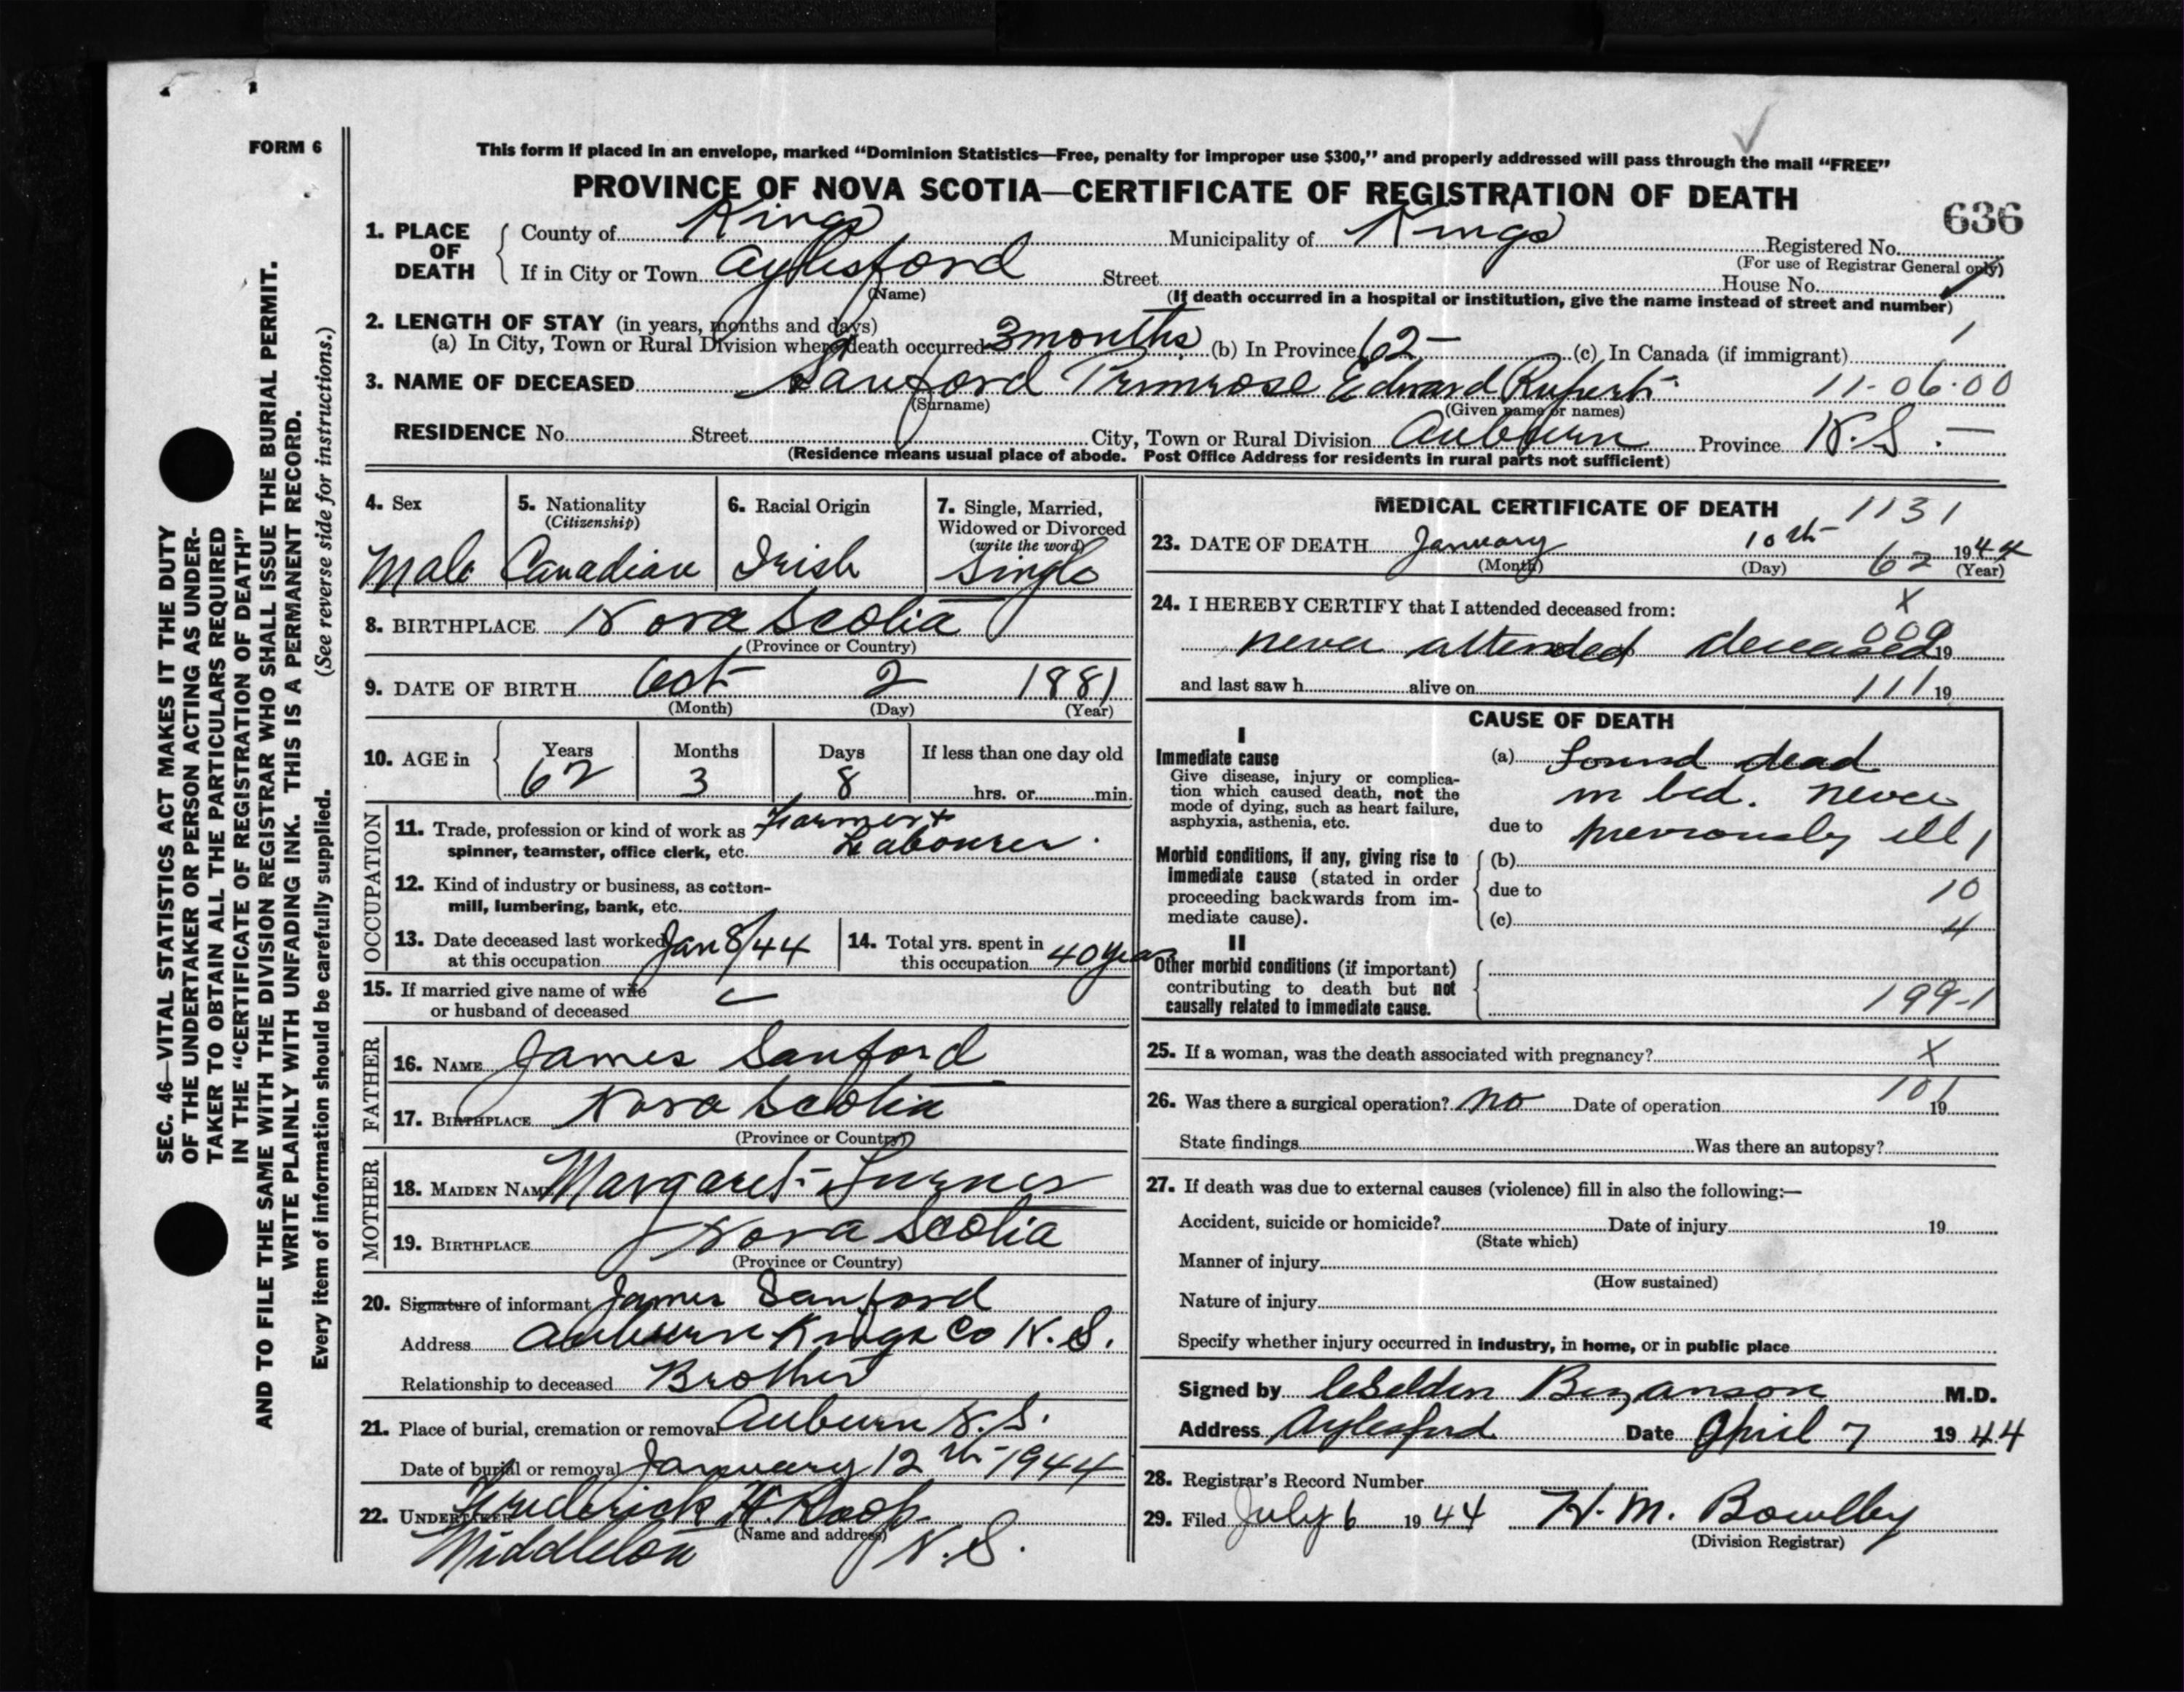 FORM 6
This form if placed in an envelope, marked “Dominion Statistics—Free, penalty for improper use $300,” and properly addressed will pass through the mail “FREE”
PROVINCE OF NOVA SCOTIA—CERTIFICATE OF REGISTRATION OF DEATH
636
1. PLACE OF DEATH County of Kings Municipality of Kings Registered No.
(For use of Registrar General only)
If in City or Town Aylesford Street House No.
(Name) (If death occurred in a hospital or institution, give the name instead of street and number)
2. LENGTH OF STAY (in years, months and days)
(a) In City, Town or Rural Division where death occurred 3 months (b) In Province 62 – (c) In Canada (if immigrant) 1
3. NAME OF DECEASED Sanford Primrose Edward Rupert 11-06-00
(Surname) (Given name or names)
RESIDENCE No. Street City, Town or Rural Division Auburn Province N.S. —
(Residence means usual place of abode. Post Office Address for residents in rural parts not sufficient)
4. Sex
Male
5. Nationality
(Citizenship)
Canadian
6. Racial Origin
Irish
7. Single, Married,
Widowed or Divorced
(write the word)
Single
8. BIRTHPLACE Nova Scotia
(Province or Country)
9. DATE OF BIRTH Oct 2 1881
(Month) (Day) (Year)
10. AGE in Years Months Days If less than one day old
62 3 8 hrs. or min.
OCCUPATION
11. Trade, profession or kind of work as Farmer +
spinner, teamster, office clerk, etc. Labourer.
12. Kind of industry or business, as cotton-
mill, lumbering, bank, etc.
13. Date deceased last worked
at this occupation Jan 8/44
14. Total yrs. spent in
this occupation 40 years
15. If married give name of wife
or husband of deceased
FATHER
16. NAME James Sanford
17. BIRTHPLACE Nova Scotia
(Province or Country)
MOTHER
18. MAIDEN NAME Margaret Turner
19. BIRTHPLACE Nova Scotia
(Province or Country)
20. Signature of informant James Sanford
Address Auburn Kings Co N.S.
Relationship to deceased Brother
21. Place of burial, cremation or removal Auburn N.S.
Date of burial or removal January 12th 1944
22. UNDERTAKER Frederick H. Roop
(Name and address)
Middleton N.S.
MEDICAL CERTIFICATE OF DEATH 1131
23. DATE OF DEATH January 10th 1944
(Month) (Day) 62 (Year)
24. I HEREBY CERTIFY that I attended deceased from: X
000
never attended deceased 19
and last saw h alive on 111 19
CAUSE OF DEATH
I
Immediate cause
Give disease, injury or complica-
tion which caused death, not the
mode of dying, such as heart failure,
asphyxia, asthenia, etc.
(a) Found dead
in bed. never
due to previously ill 1
Morbid conditions, if any, giving rise to
immediate cause (stated in order
proceeding backwards from im-
mediate cause).
(b)
due to 10
(c) 4
II
Other morbid conditions (if important)
contributing to death but not
causally related to immediate cause.
199-1
25. If a woman, was the death associated with pregnancy? X
101
26. Was there a surgical operation? no Date of operation 19
State findings Was there an autopsy?
27. If death was due to external causes (violence) fill in also the following:—
Accident, suicide or homicide? Date of injury 19
(State which)
Manner of injury
(How sustained)
Nature of injury
Specify whether injury occurred in industry, in home, or in public place
Signed by Selden Bezanson M.D.
Address Aylesford Date April 7 1944
28. Registrar's Record Number
29. Filed July 6 1944 H. M. Bowlby
(Division Registrar)
SEC. 46—VITAL STATISTICS ACT MAKES IT THE DUTY
OF THE UNDERTAKER OR PERSON ACTING AS UNDER-
TAKER TO OBTAIN ALL THE PARTICULARS REQUIRED
IN THE “CERTIFICATE OF REGISTRATION OF DEATH”
AND TO FILE THE SAME WITH THE DIVISION REGISTRAR WHO SHALL ISSUE THE BURIAL PERMIT.
WRITE PLAINLY WITH UNFADING INK. THIS IS A PERMANENT RECORD.
Every item of information should be carefully supplied. (See reverse side for instructions.)